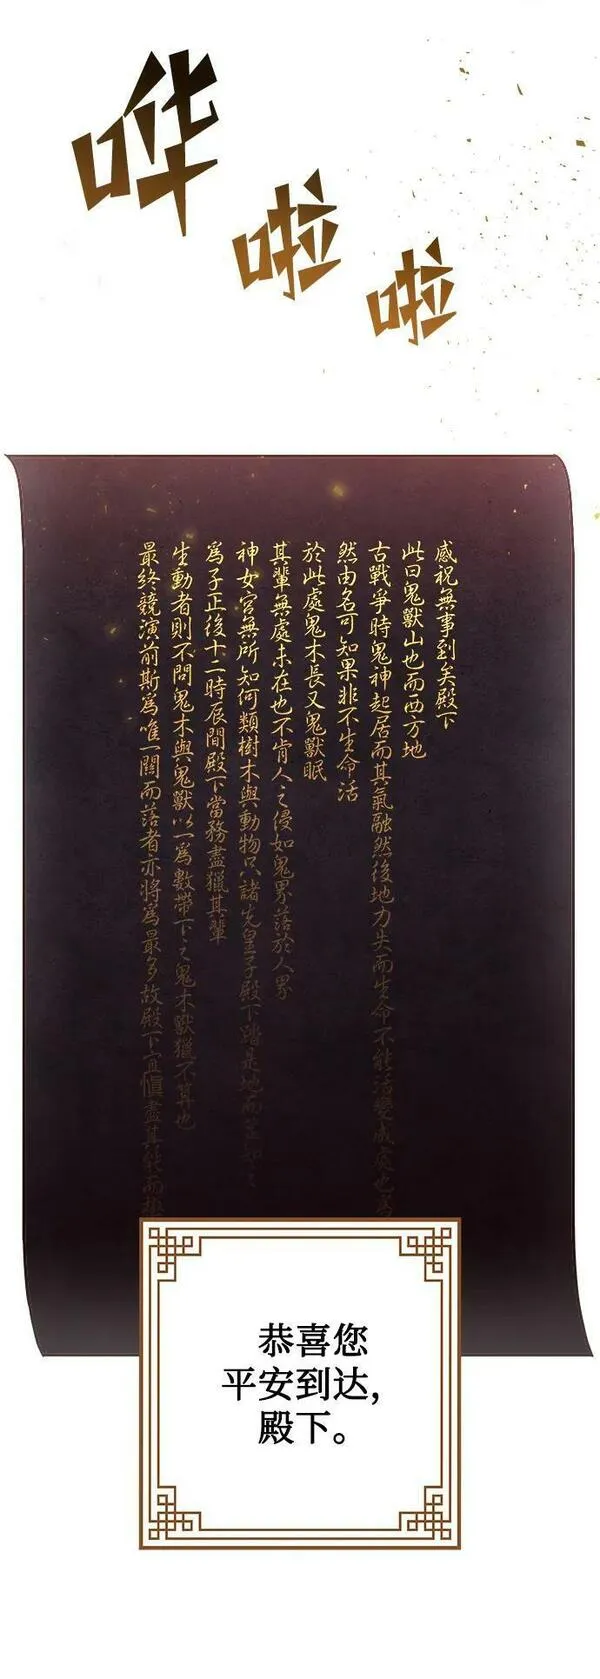 哗
啦
啦
感祝無事到矣殿下
此曰鬼獸山也而西方地
古戰爭時鬼神起居而其氣融然後地力失而生命不能活變感
然由名可知果非不生命活
於此處鬼木長又鬼獸眠
其輩無處未在也不肯人之侵如鬼界落於人界
神女宮無所知何類樹木與動物只諸先皇子殿下踏是地而
為子正後十二時辰間殿下當務盡獵其輩
生動者則不問鬼木與鬼獸以一為數帶下之鬼木獸獵不算也
最終競演前斯為唯一關而落者亦將為最多故殿下宜慎盡其能而
恭喜您
平安到达,
殿下。